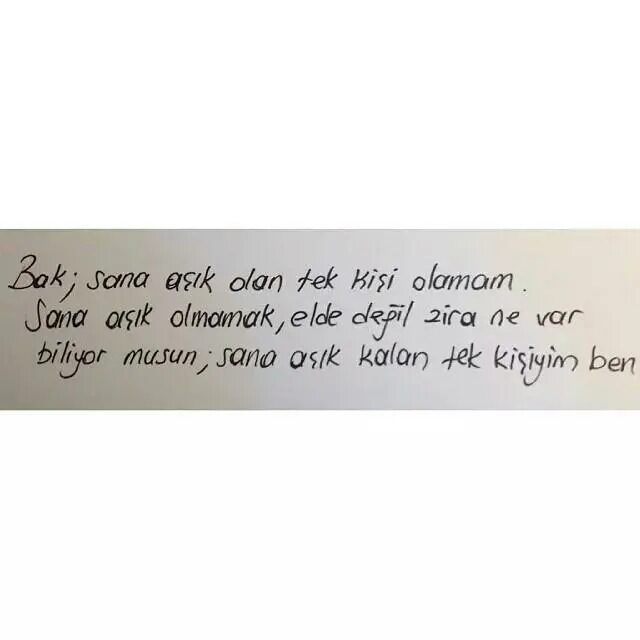 Bak; sana aşık olan tek kişi olamam.
Sana aşık olmamak, elde değil zira ne var
biliyor musun; sana aşık kalan tek kişiyim ben